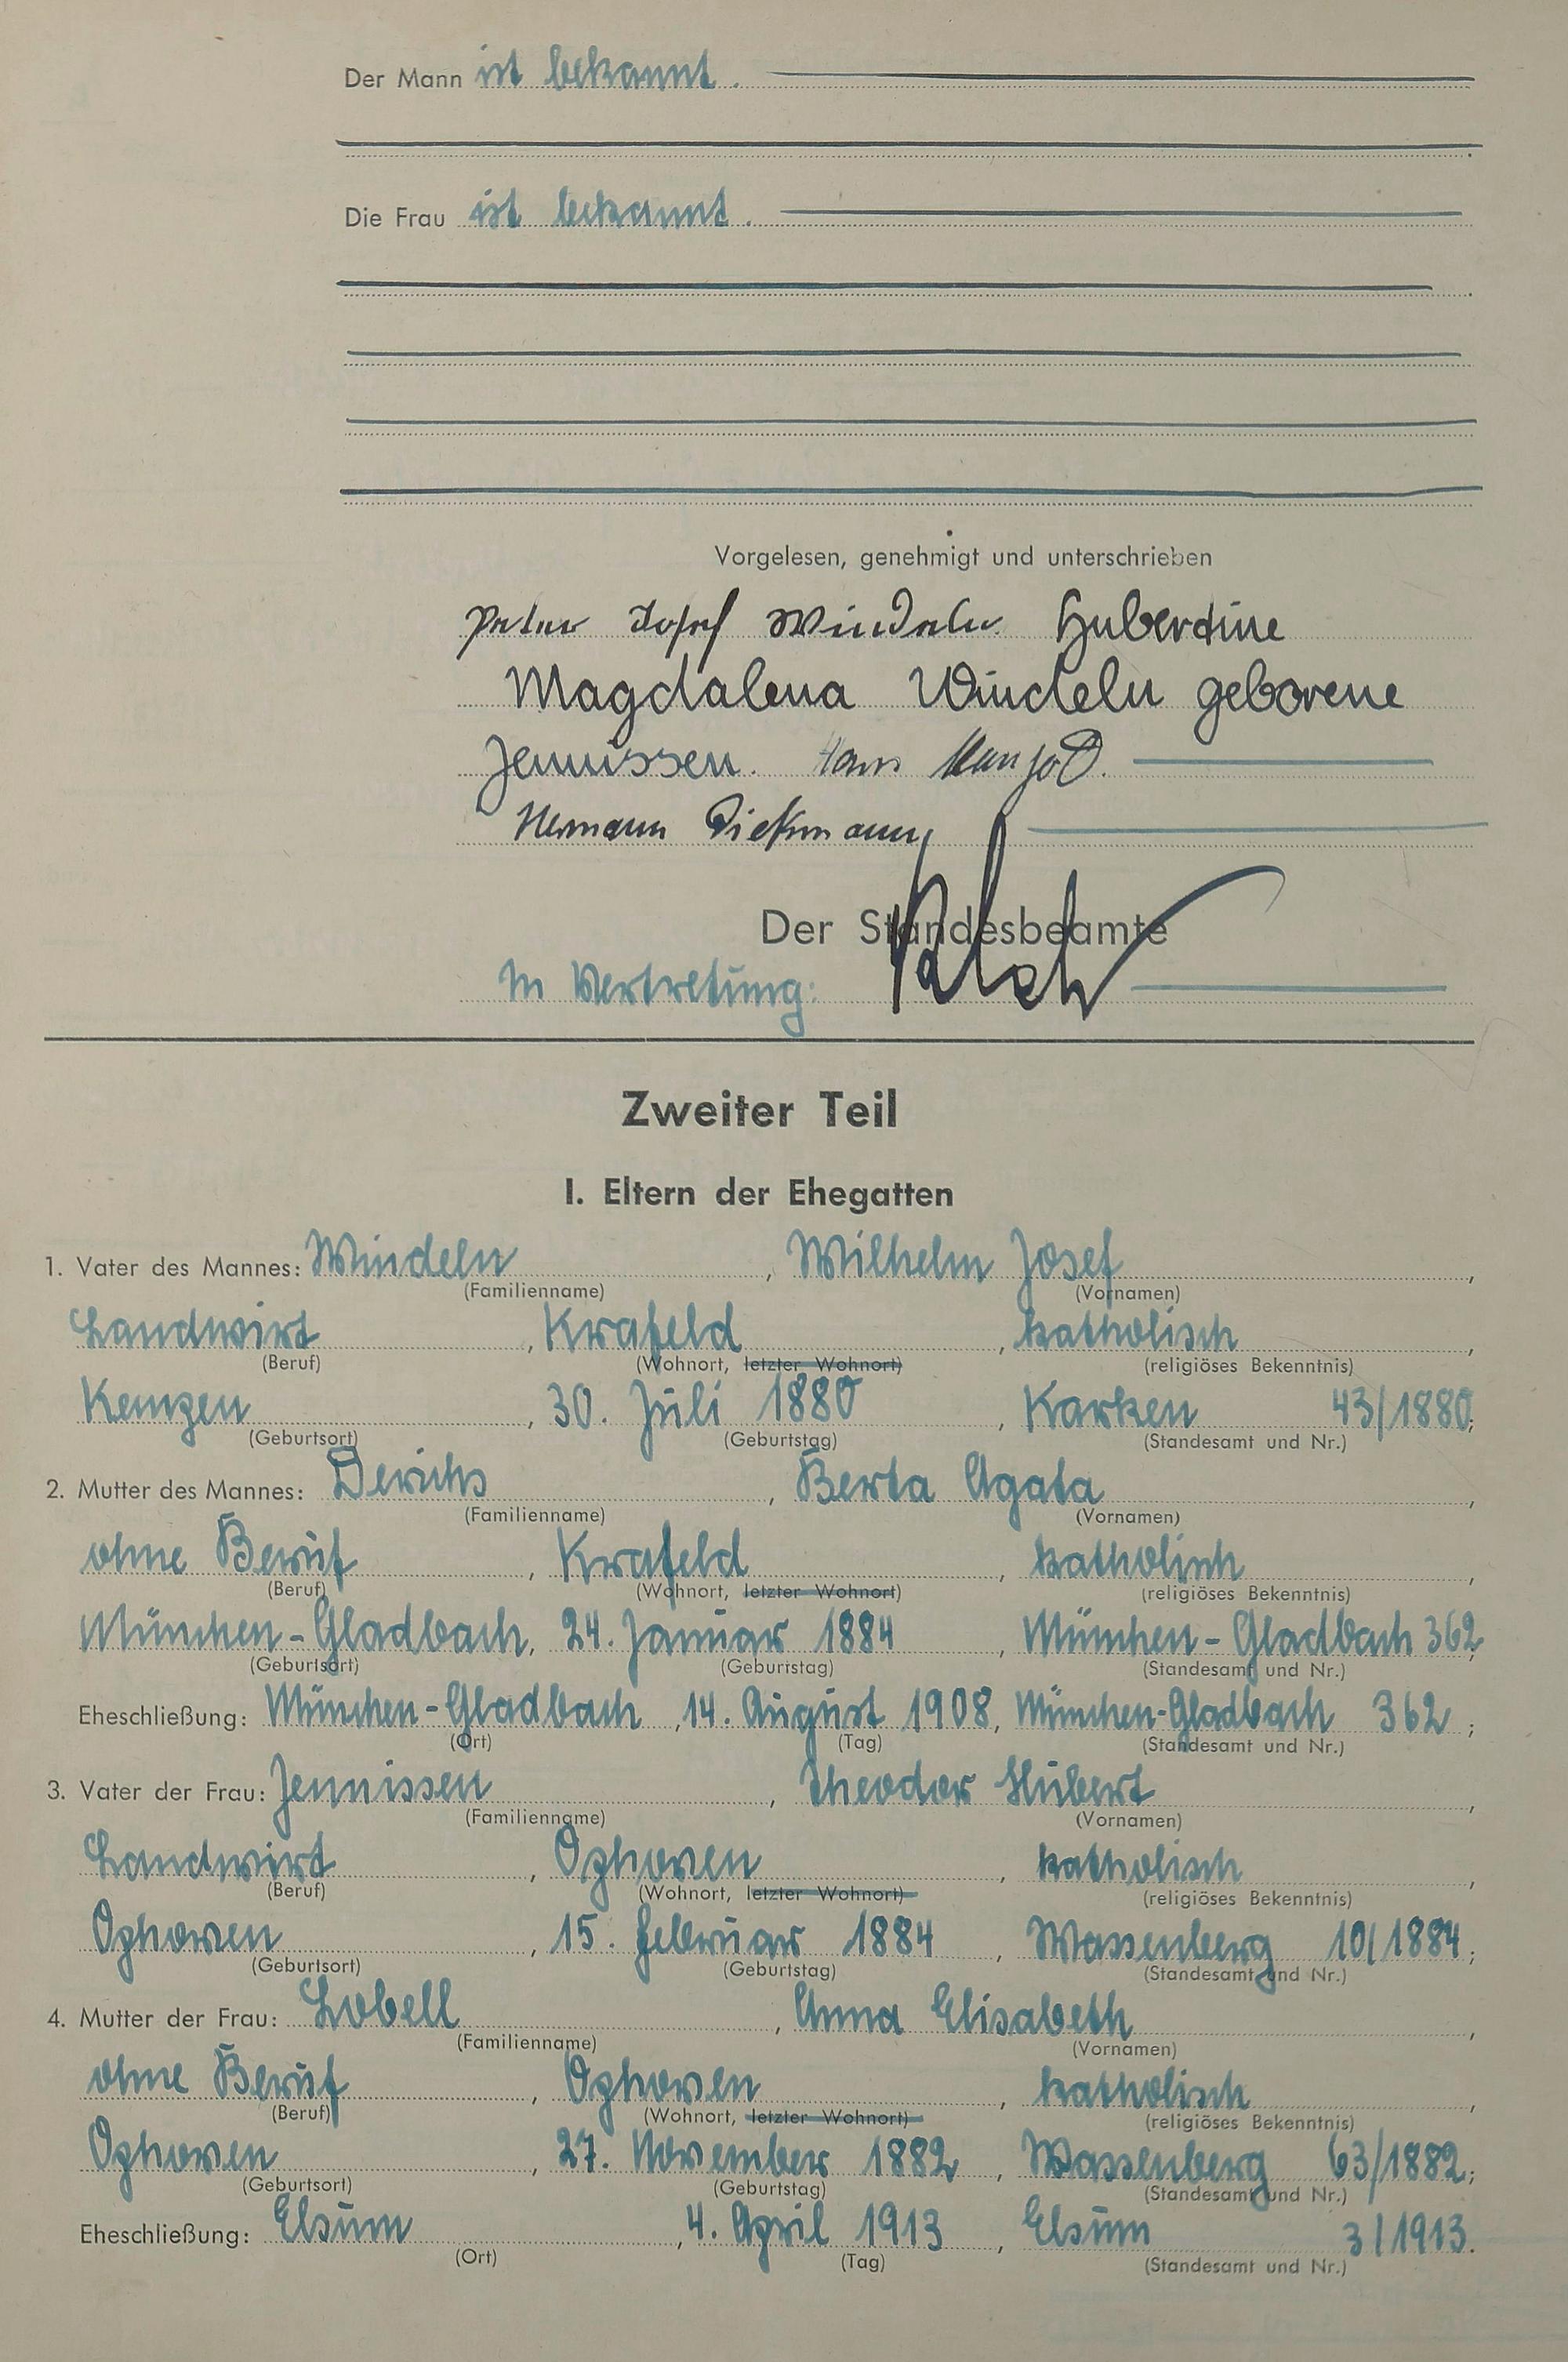 Der Mann ist bekannt.
Die Frau ist bekannt.
Vorgelesen, genehmigt und unterschrieben
Peter Josef Windeln Hubertine
Magdalena Windeln geborene
Jennissen. Hans
Hermann Dickmann
Der Standesbeamte
In Vertretung:
Zweiter Teil
I. Eltern der Ehegatten
1. Vater des Mannes: Windeln, Wilhelm Josef,
(Familienname) (Vornamen)
Landwirt, Krafeld, katholisch,
(Beruf) (Wohnort, letzter Wohnort) (religiöses Bekenntnis)
Kempen, 30. Juli 1880, Karken 43/1880;
(Geburtsort) (Geburtstag) (Standesamt und Nr.)
2. Mutter des Mannes: Derichs, Berta Agata,
(Familienname) (Vornamen)
ohne Beruf, Krafeld, katholisch,
(Beruf) (Wohnort, letzter Wohnort) (religiöses Bekenntnis)
München-Gladbach, 24. Januar 1884, München-Gladbach 362;
(Geburtsort) (Geburtstag) (Standesamt und Nr.)
Eheschließung: München-Gladbach, 14. August 1908, München-Gladbach 362;
(Ort) (Tag) (Standesamt und Nr.)
3. Vater der Frau: Jennissen, Theodor Hubert,
(Familienname) (Vornamen)
Landwirt, Ophoven, katholisch,
(Beruf) (Wohnort, letzter Wohnort) (religiöses Bekenntnis)
Ophoven, 15. Februar 1884, Wassenberg 10/1884;
(Geburtsort) (Geburtstag) (Standesamt und Nr.)
4. Mutter der Frau: Lobell, Anna Elisabeth,
(Familienname) (Vornamen)
ohne Beruf, Ophoven, katholisch,
(Beruf) (Wohnort, letzter Wohnort) (religiöses Bekenntnis)
Ophoven, 27. November 1882, Wassenberg 63/1882;
(Geburtsort) (Geburtstag) (Standesamt und Nr.)
Eheschließung: Elsum, 4. April 1913, Elsum 3/1913.
(Ort) (Tag) (Standesamt und Nr.)